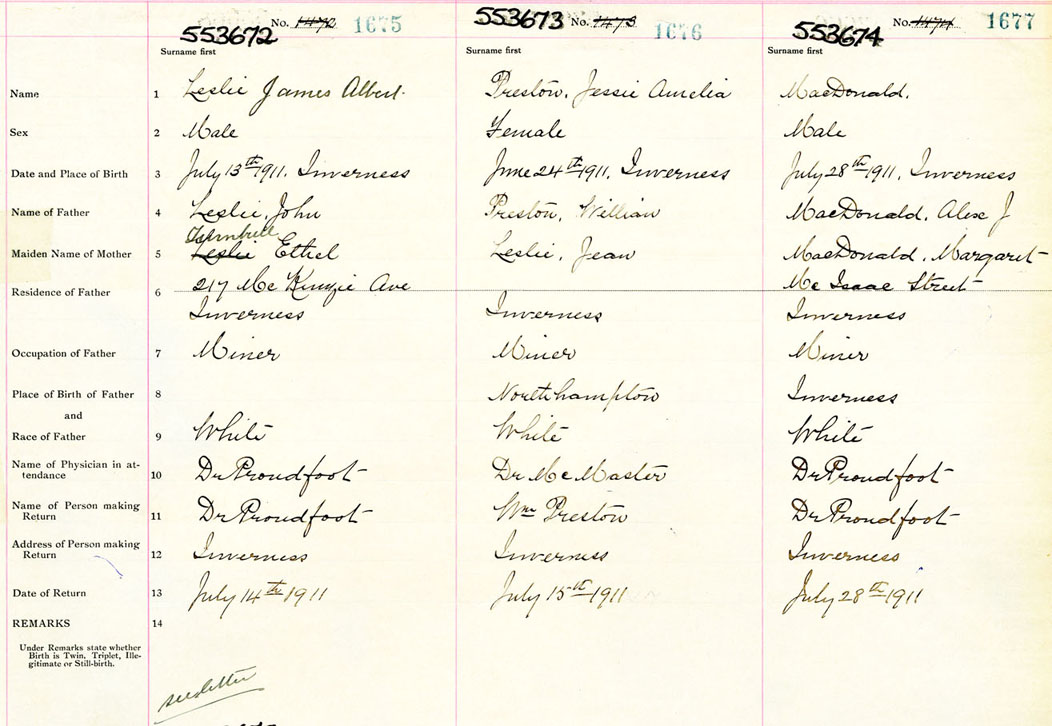 553672 No. 1472 1675
Surname first
553673 No. 1473 1676
Surname first
553674 No. 1474 1677
Surname first
Name 1 Leslie James Albert. Preston, Jessie Amelia MacDonald.
Sex 2 Male Female Male
Date and Place of Birth 3 July 13th 1911. Inverness June 24th 1911. Inverness July 28th 1911, Inverness
Name of Father 4 Leslie, John Preston, William MacDonald, Alex J
Turnbull
Maiden Name of Mother 5 Leslie Ethel Leslie, Jean MacDonald, Margaret
217 Mc Kenzie Ave Mc Isaac Street
Residence of Father 6
Inverness Inverness Inverness
Occupation of Father 7 Miner Miner Miner
Place of Birth of Father 8 Northhampton Inverness
and
Race of Father 9 White White White
Name of Physician in at-
tendance 10 Dr Proudfoot Dr McMaster Dr Proudfoot
Name of Person making
Return 11 Dr Proudfoot Wm Preston Dr Proudfoot
Address of Person making
Return 12 Inverness Inverness Inverness
Date of Return 13 July 14th 1911 July 15th 1911 July 28th 1911
REMARKS 14
Under Remarks state whether
Birth is Twin, Triplet, Ille-
gitimate or Still-birth.
see letter